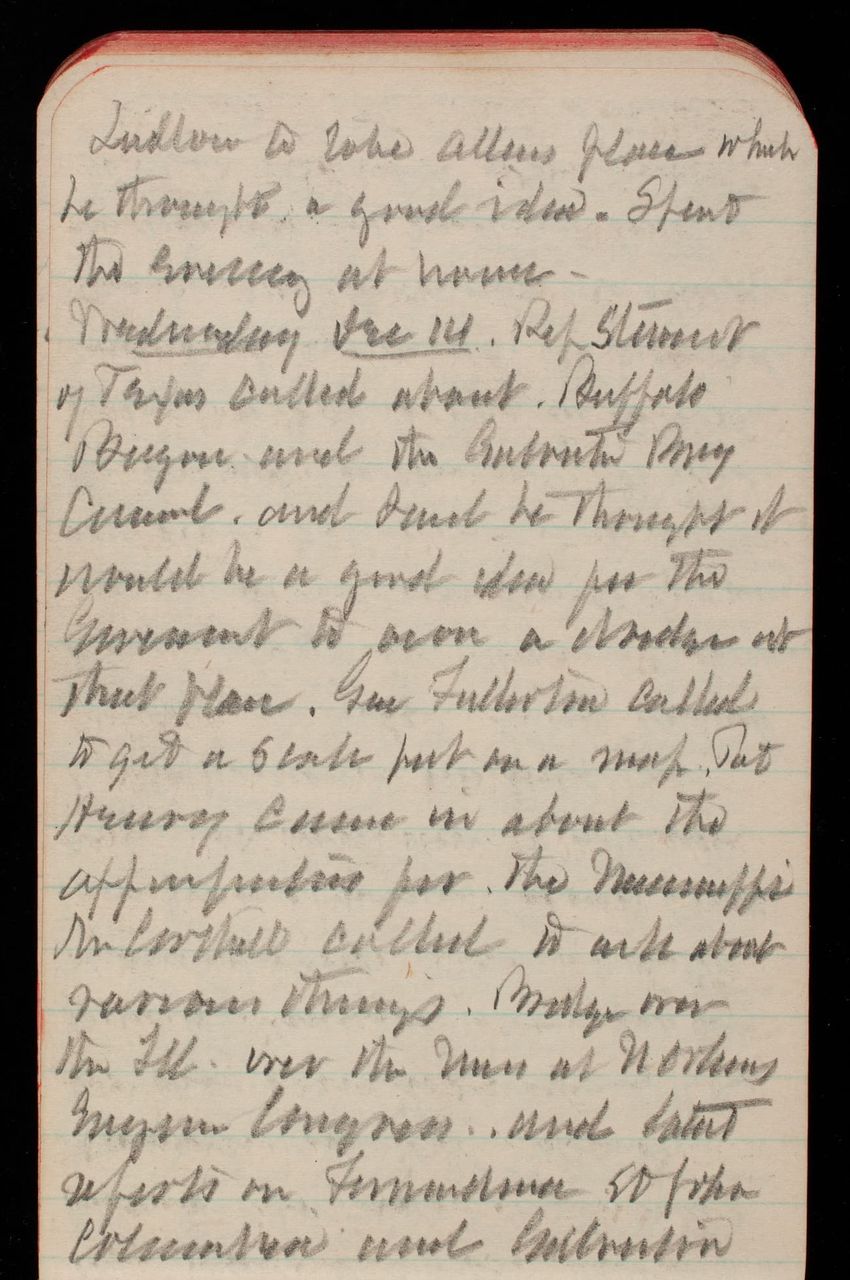 Ludlow to take Allens place which
he thought a good idea. Spent
the evening at home -
Wednesday Dec 14. Rep Stewart
of Texas called about. Buffalo
Bayou and the Galveston Bay
Canal. and said he thought it
would be a good idea for the
Government to own a dredge at
that place. Gen Fullerton called
to get a scale put on a map. Pat
Henry came in about the
appropriation for. the
Mr Corthell called to ask about
various things. Bridge over
the Ill. over the Miss at N Orleans
Congress.. and latest
reports on Fernandina St Johns
Columbia and Galveston